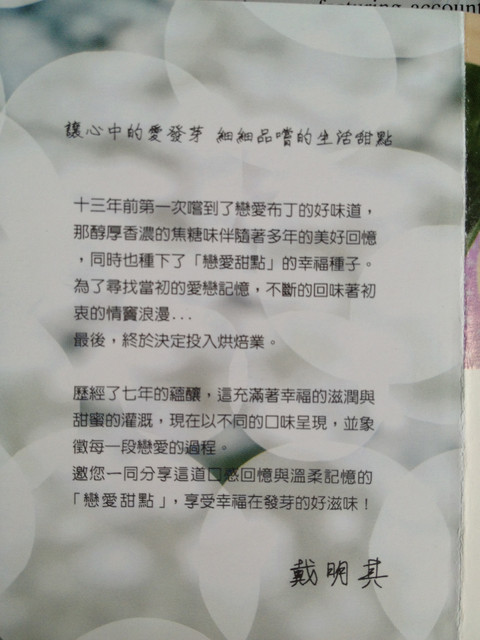 featuring account
讓心中的愛發芽 細細品嚐的生活甜點
十三年前第一次嚐到了戀愛布丁的好味道，
那醇厚香濃的焦糖味伴隨著多年的美好回憶
，同時也種下了「戀愛甜點」的幸福種子。
為了尋找當初的愛戀記憶，不斷的回味著初
衷的情竇浪漫...
最後，終於決定投入烘焙業。
歷經了七年的蘊釀，這充滿著幸福的滋潤與
甜蜜的灌溉，現在以不同的口味呈現，並象
徵每一段戀愛的過程。
邀您一同分享這道口感回憶與溫柔記憶的
「戀愛甜點」，享受幸福在發芽的好滋味！
戴明其